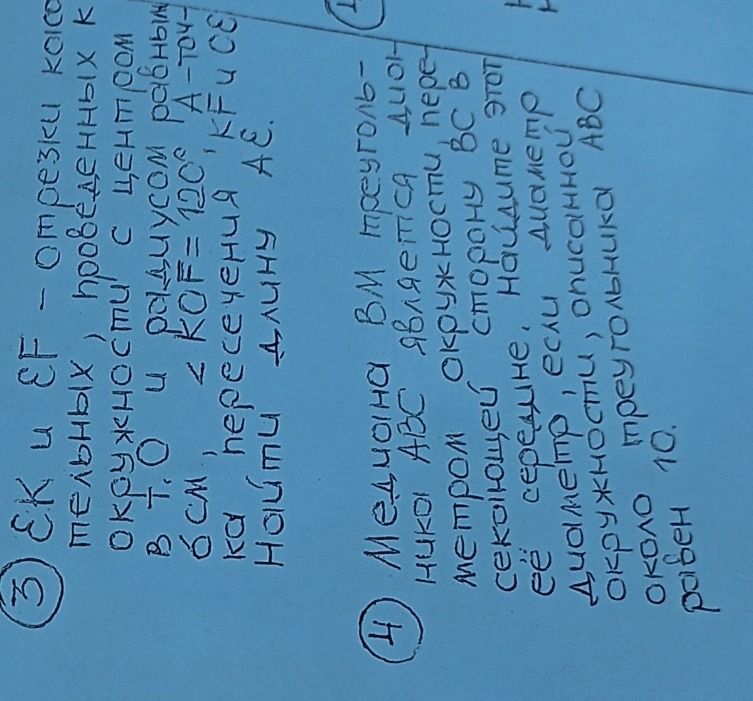 3 ЕК и ЕF - отрезки каса
тельных, проведенных к
окружности с центром
в т.О и радиусом равным
6см, < KOF = 120° А-точ-
ка пересечения KF и ОЕ
Найти длину АЕ.
4 Медиана ВМ треуголь-
ника АВС является диа-
метром окружности, пере-
секающей сторону ВС в
её середине. Найдите этот
диаметр, если диаметр
окружности, описанной
около треугольника АВС
равен 10.